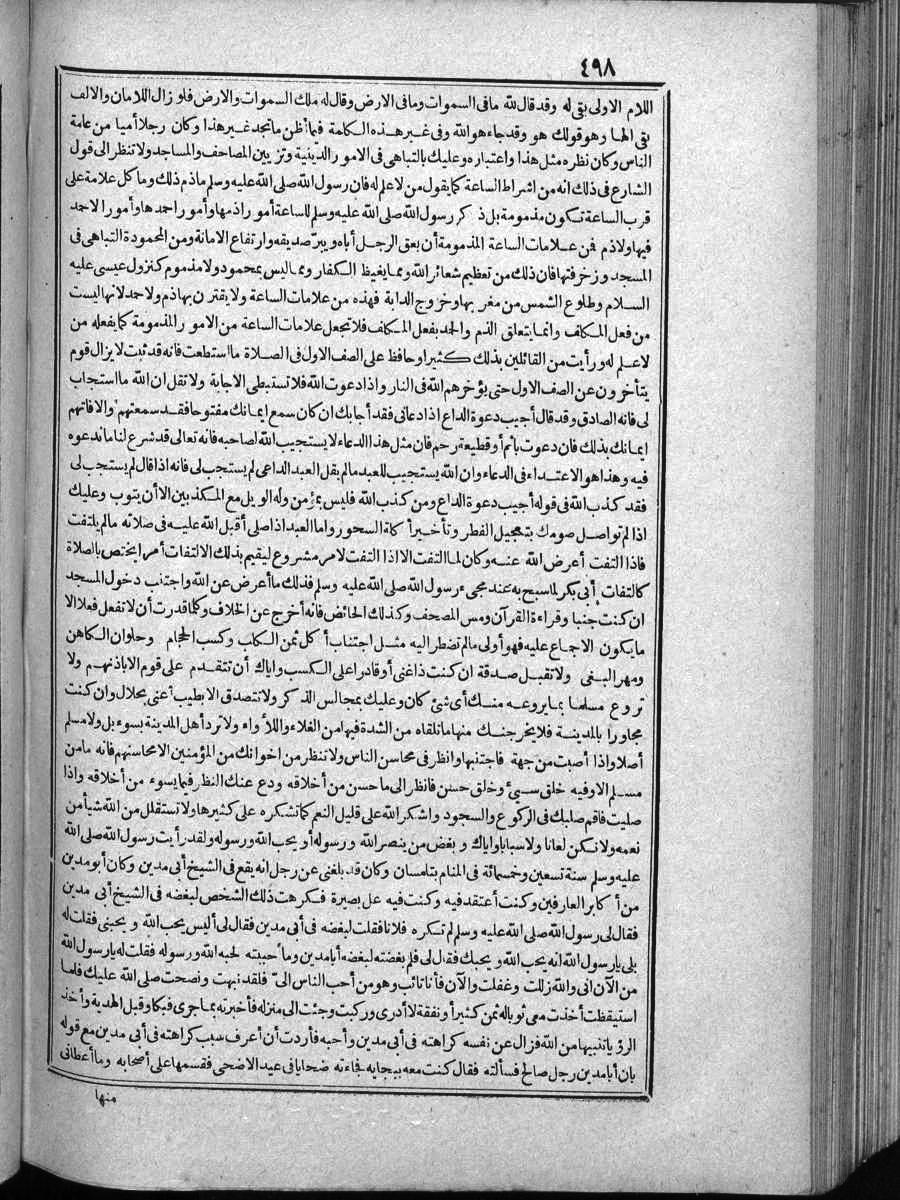 ٤٩٨
اللام الاولى بقى له وقد قال لله مافى السموات ومافى الارض وقال له ملك السموات والارض فلو زال اللامان والالف
بقى الهاء وهو قولك هو وقد جاء هو الله وفى غير هذه الكلمة فيما أظن ما تجد غير هذا وكان رجلا أميا من عامة
الناس وكان نظره مثل هذا واعتباره وعليك بالتباهى فى الامور الدينية وتزيين المصاحف والمساجد ولا تنظر الى قول
الشارع فى ذلك انه من اشراط الساعة كما يقول من لا علم له فان رسول الله صلى الله عليه وسلم ماذم ذلك وما كل علامة على
قرب الساعة تكون مذمومة بل ذكر رسول الله صلى الله عليه وسلم للساعة أمورا ذمها وأمورا حمدها وأمورا لا حمد
فيها ولا ذم فمن علامات الساعة المذمومة أن يعق الرجل أباه ويبر صديقه وارتفاع الامانة ومن المحمودة التباهى فى
المسجد وزخرفتها فان ذلك من تعظيم شعائر الله ومما يغيظ الكفار ومما ليس بمحمود ولا مذموم كنزول عيسى عليه
السلام وطلوع الشمس من مغربها وخروج الدابة فهذه من علامات الساعة ولا يقترن بها ذم ولا حمد لانها ليست
من فعل المكلف وانما يتعلق الذم والحمد بفعل المكلف فلا تجعل علامات الساعة من الامور المذمومة كما يفعله من
لا علم له ورأيت من القائلين بذلك كثيرا وحافظ على الصف الاول فى الصلاة ما استطعت فانه قد ثبت لا يزال قوم
يتأخرون عن الصف الاول حتى يؤخرهم الله فى النار واذا دعوت الله فلا تستبطئ الاجابة ولا تقل ان الله ما استجاب
لى فانه الصادق وقد قال أجيب دعوة الداع اذا دعانى فقد أجابك ان كان سمع ايمانك مفتوحا فقد سمعتهم والافاتهم
ايمانك بذلك فان دعوت باثم أو قطيعة رحم فان مثل هذا الدعاء لا يستجيب الله لصاحبه فانه تعالى قد شرع لنا ما ندعوه
فيه وهذا هو الاعتداء فى الدعاء وان الله يستجيب للعبد مالم يقل العبد الداعى لم يستجب لى فانه اذا قال لم يستجب لى
فقد كذب الله فى قوله أجيب دعوة الداع ومن كذب الله فليس بمؤمن وله الويل مع المكذبين الا أن يتوب وعليك
اذا لم تواصل صومك بتعجيل الفطر وتأخير أكلة السحور واما العبد اذا صلى أقبل الله عليه فى صلاته مالم يلتفت
فاذا التفت أعرض الله عنه وكان لما التفت الا اذا التفت لامر مشروع ليقيم بذلك الالتفات أمرا يختص بالصلاة
كالتفات أبى بكر لما سبح به عند مجىء رسول الله صلى الله عليه وسلم فذلك ما أعرض عن الله واجتنب دخول المسجد
ان كنت جنبا وقراءة القرآن ومس المصحف وكذلك الحائض فانه أخرج عن الخلاف وكلما قدرت أن لا تفعل فعلا الا
ما يكون الاجماع عليه فهو أولى مالم تضطر اليه مثل اجتناب أكل ثمن الكلب وكسب الحجام وحلوان الكاهن
ومهر البغى ولا تقبل صدقة ان كنت ذا غنى أو قادرا على الكسب واياك أن تتقدم على قوم الا باذنهم ولا
تروع مسلما بما يروعه منك أى شئ كان وعليك بمجالس الذكر ولا تتصدق الا بطيب أعنى بحلال وان كنت
مجاورا بالمدينة فلا يخرجنك منها ما تلقاه من الشدة فيها من الغلاء واللأواء ولا ترد أهل المدينة بسوء بل ولا مسلم
أصلا واذا أصبت من جهة فاجتنبها وانظر فى محاسن الناس ولا تنظر من اخوانك من المؤمنين الا محاسنهم فانه مامن
مسلم الا وفيه خلق سيئ وخلق حسن فانظر الى ما حسن من أخلاقه ودع عنك النظر فيما يسوء من أخلاقه واذا
صليت فاقم صلبك فى الركوع والسجود واشكر الله على قليل النعم كما تشكره على كثيرها ولا تستقلل من الله شيأ من
نعمه ولا تكن لعانا ولا سبابا واياك وبغض من ينصر الله ورسوله أو يحب الله ورسوله ولقد رأيت رسول الله صلى الله
عليه وسلم سنة تسعين وخمسمائة فى المنام بتلمسان وكان قد بلغنى عن رجل انه يقع فى الشيخ أبى مدين وكان أبو مدين
من أكابر العارفين وكنت أعتقد فيه وكنت فيه على بصيرة فكرهت ذلك الشخص لبغضه فى الشيخ أبى مدين
فقال لى رسول الله صلى الله عليه وسلم لم تكره فلانا فقلت لبغضه فى أبى مدين فقال لى أليس يحب الله ويحبنى فقلت له
بلى يا رسول الله انه يحب الله ويحبك فقال لى فلم بغضته لبغضه أبا مدين وما حببته لحبه الله ورسوله فقلت له يا رسول الله
من الآن انى والله زللت وغفلت والآن فأنا تائب وهو من أحب الناس الىّ فلقد نبهت ونصحت صلى الله عليك فلما
استيقظت أخذت معى ثوبا له ثمن كثير أو نفقة لا أدرى وركبت وجئت الى منزله فأخبرته بما جرى فبكا وقبل الهدية وأخذ
الرؤيا تنبيها من الله فزال عن نفسه كراهته فى أبى مدين وأحبه فأردت أن أعرف سبب كراهته فى أبى مدين مع قوله
بان أبا مدين رجل صالح فسألته فقال كنت معه ببجايه فجاءته ضحايا فى عيد الاضحى فقسمها على أصحابه وما أعطانى
منها